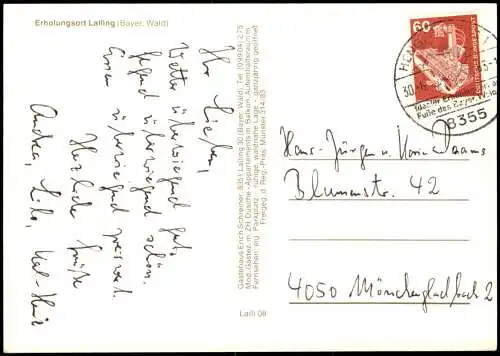 Erholungsort Lalling (Bayer. Wald)
Ihr Lieben,
Wetter überwiegend gut,
Gegend überwiegend schön.
Essen überwiegend preiswert.
Herzliche Grüße
Andrea, Silke, Karl-Heinz
Gästehaus Erich Schreiner, 8351 Lalling 30 (Bayer. Wald), Tel. (09904) 275
Mod. Gästez. m. ZH Dusche - Appartements m. Balkon, Aufenthaltsraum m.
Fernsehen, eig. Parkplatz - ruhige, waldreiche Lage - ganzjährig geöffnet
Freigeg. d. Reg.-Präs. Münster 314/83
Lalli 08
60
DEUTSCHE BUNDESPOST
30.
Fuße des Bayer. Wald
8355
Hans-Jürgen u. Daams
Blumenstr. 42
4050 Mönchengladbach 2